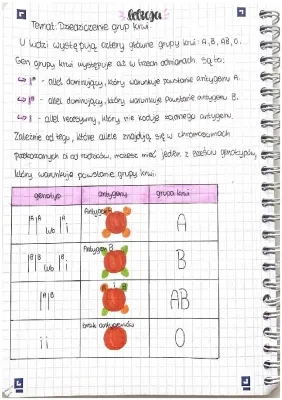 3. Lekcja
Temat: Dziedziczenie grup krwi.
U ludzi występują cztery główne grupy krwi: A, B, AB, 0.
Gen grupy krwi występuje aż w trzech odmianach. Są to:
↪ Iᴬ - allel dominujący, który warunkuje powstanie antygenu A.
↪ Iᴮ - allel dominujący, który warunkuje powstanie antygenu B.
↪ i - allel recesywny, który nie koduje żadnego antygenu.
Zależnie od tego, które allele znajdują się w chromosomach
przekazanych ci od rodziców, możesz mieć jeden z sześciu genotypów,
który warunkuje powstanie grupy krwi.
genotyp antygeny grupa krwi
Antygen A
IᴬIᴬ lub Iᴬi A
Antygen B
IᴮIᴮ lub Iᴮi B
IᴬIᴮ AB
brak antygenów
ii 0